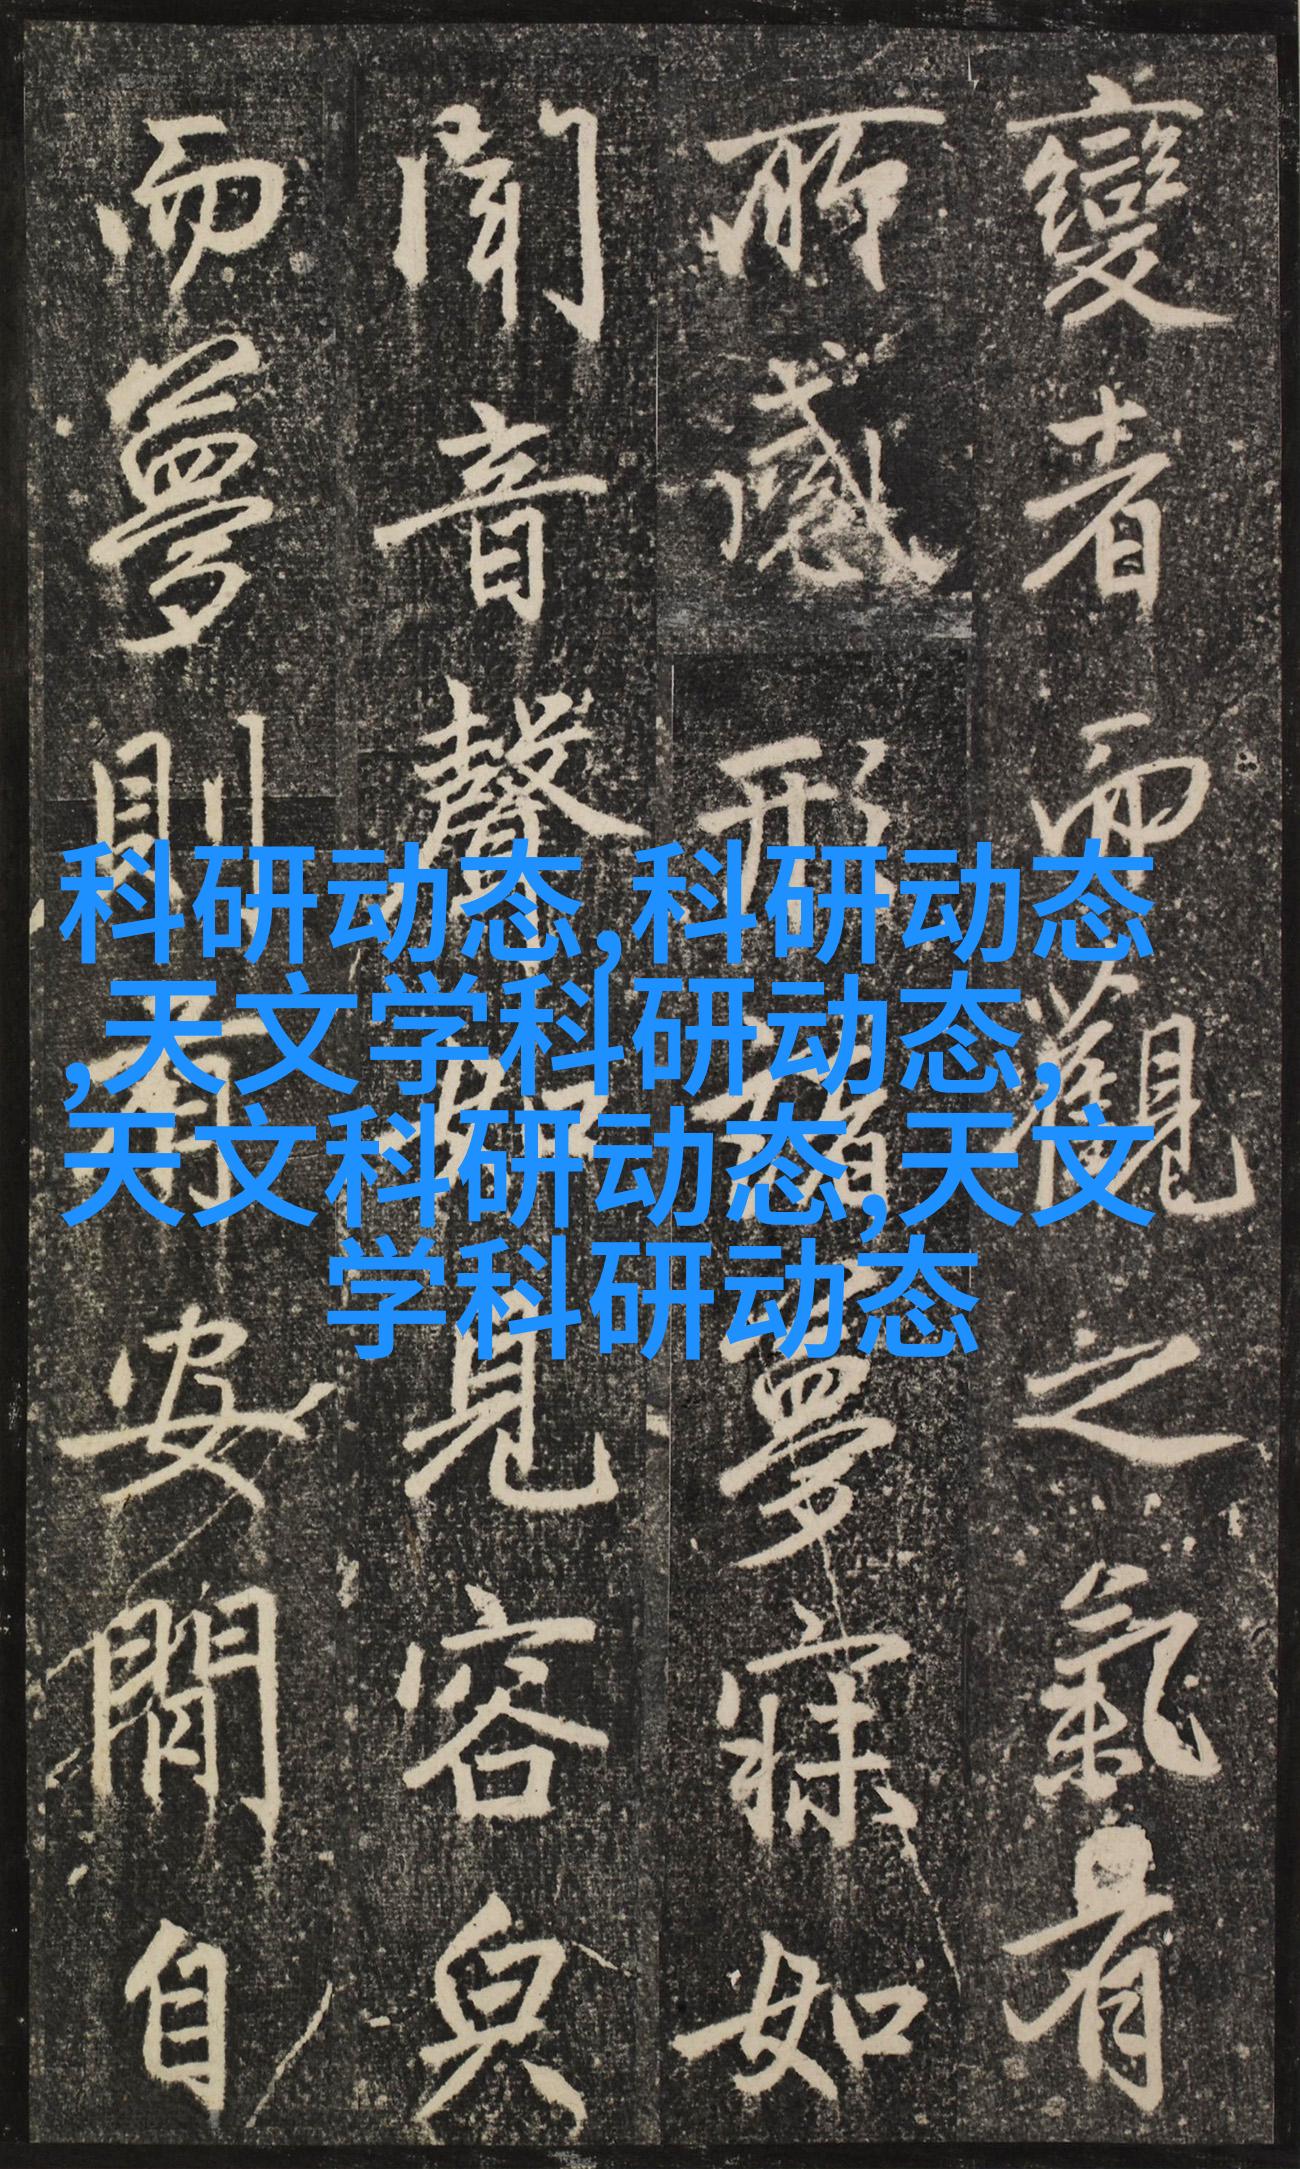 變者而觀之氣有
所感形諸夢寐如
聞音聲如見容皃
而夢則安閒自
科研动态,科研动态
,天文学科研动态,
天文科研动态,天文
学科研动态